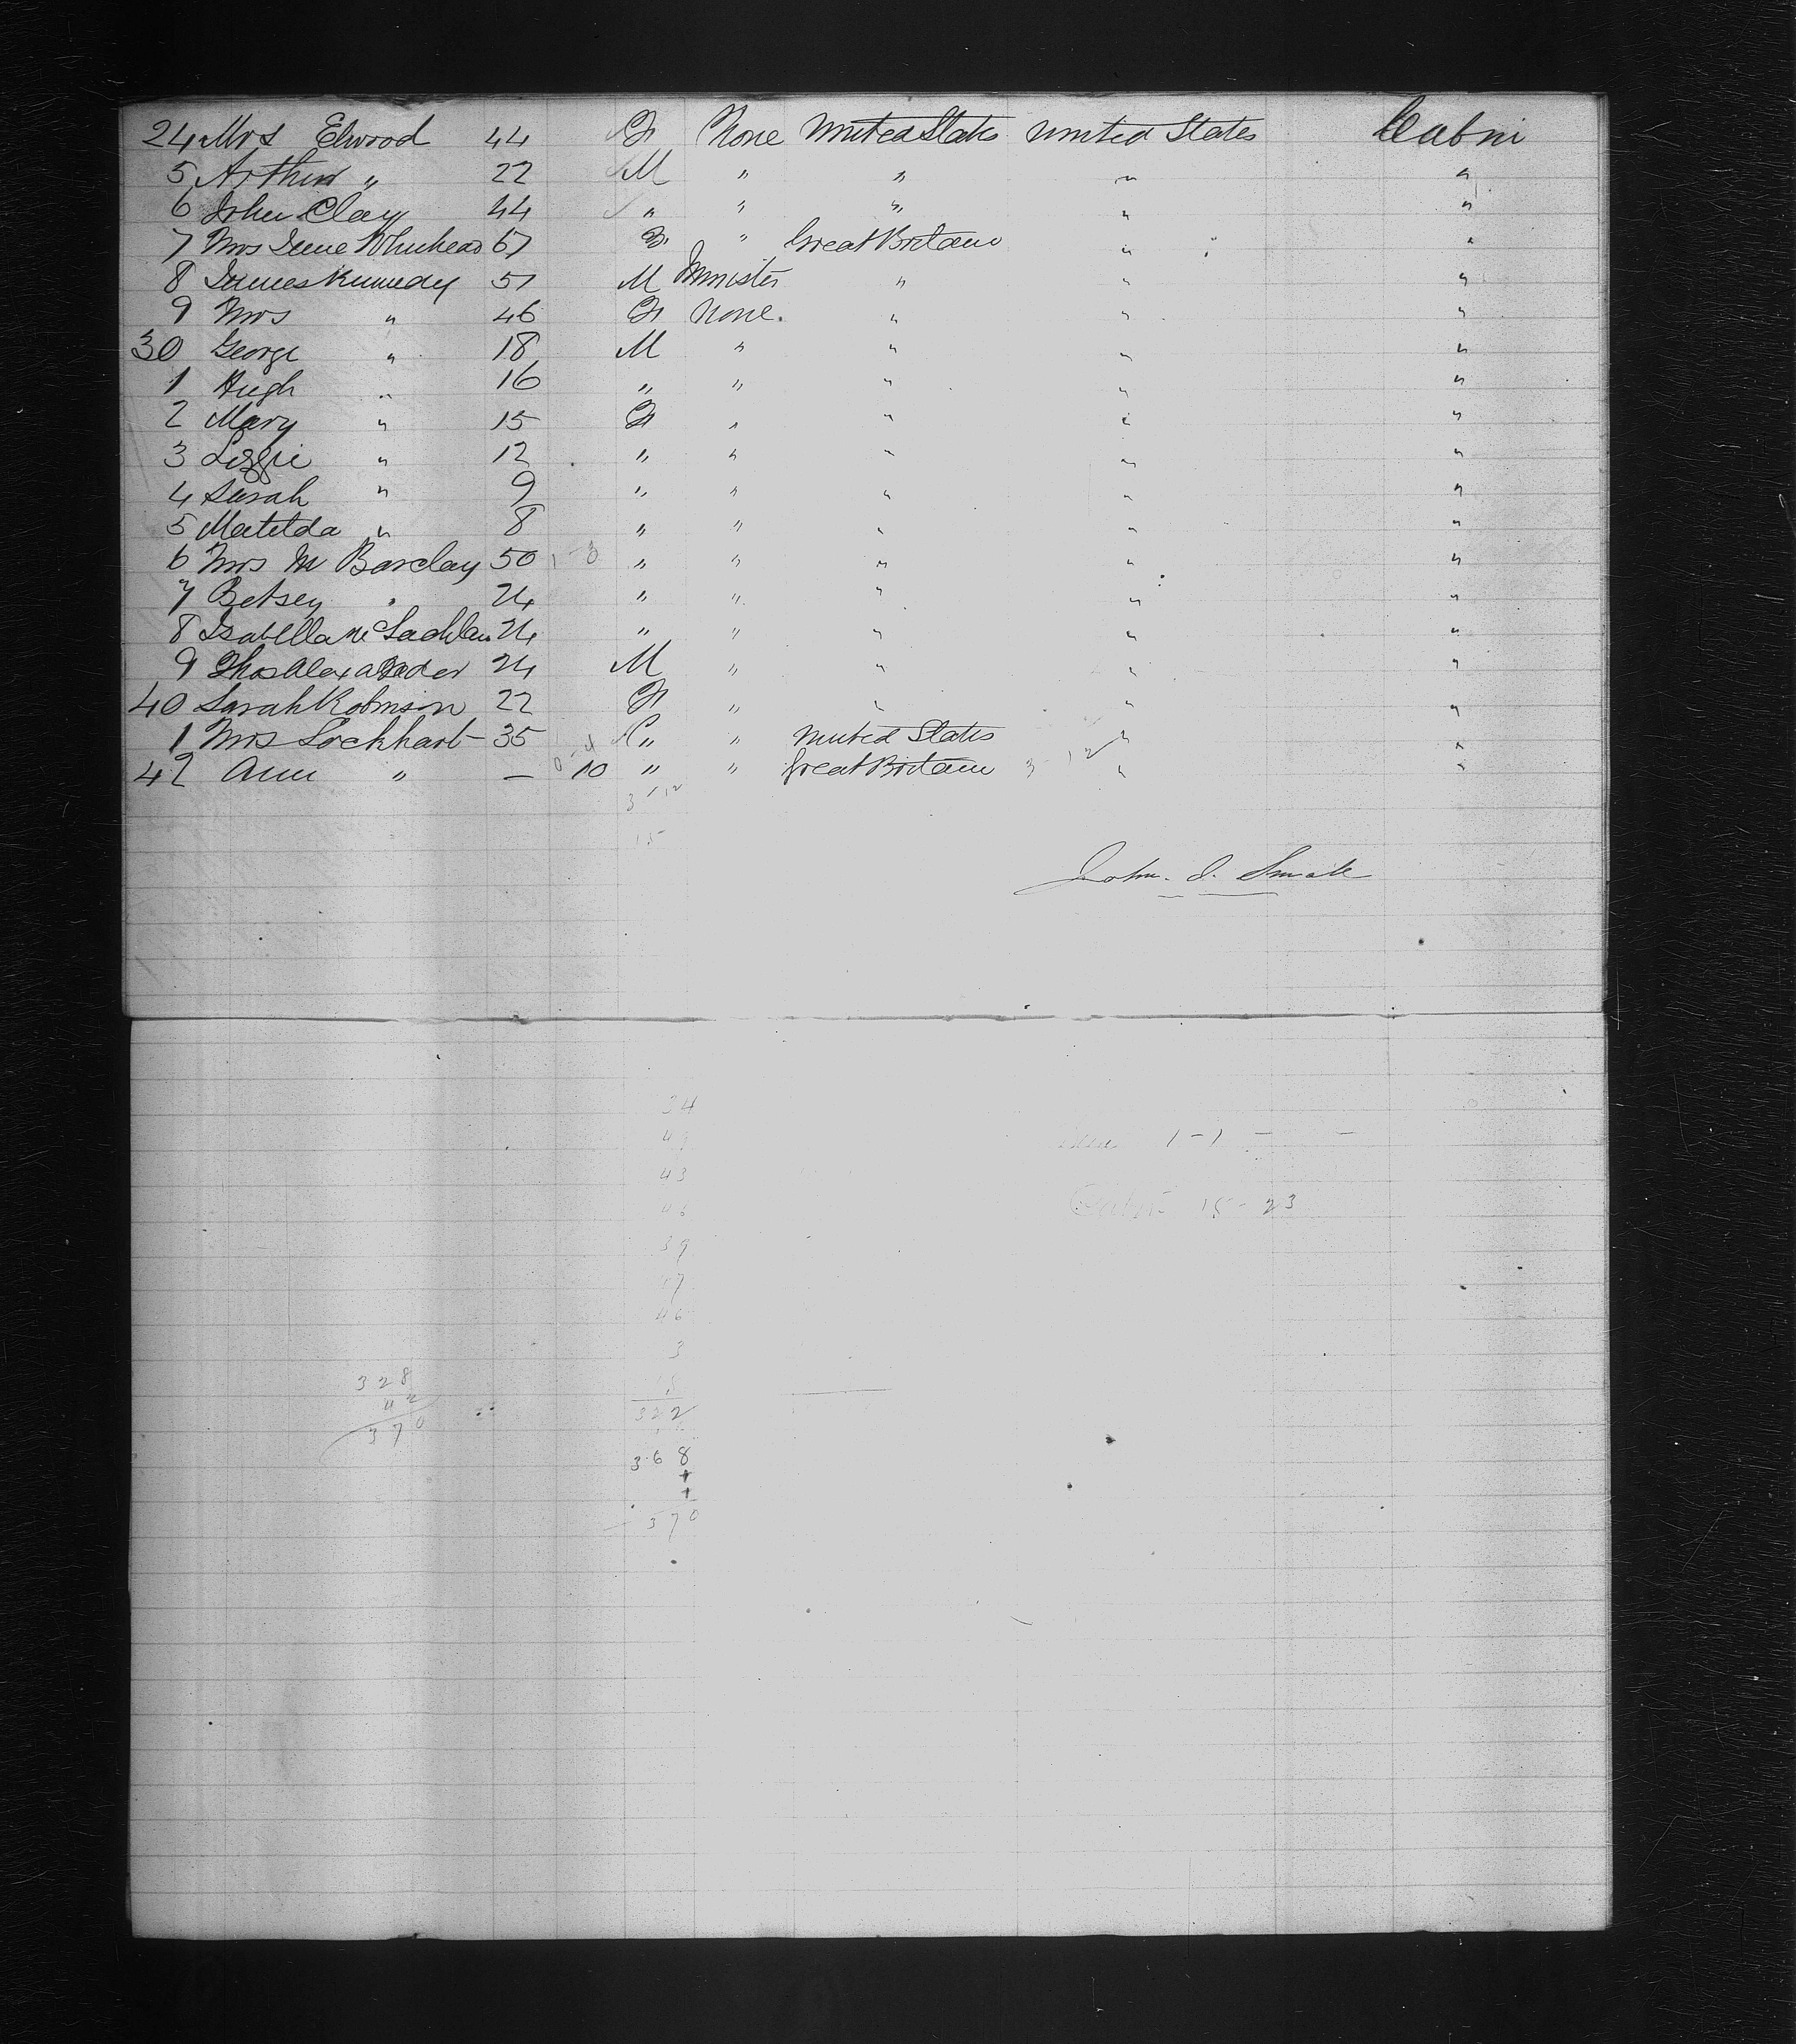 24 Mrs Elwood 44 F None United States United States Cabin
5 Arthur " 22 M " " " "
6 John Clay 44 " " " " "
7 Mrs 67 F " Great Britain " "
8 James Kennedy 51 M Minister " " "
9 Mrs " 46 F None. " " "
30 George " 18 M " " " "
1 Hugh " 16 " " " " "
2 Mary " 15 F " " " "
3 Lizzie " 12 " " " " "
4 Sarah " 9 " " " " "
5 Matilda " 8 " " " " "
6 Mrs M Barclay 50 " " " " "
7 Betsey " 24 " " " " "
8 Isabella Mc Lachlan 24 " " " " "
9 Thos Alexander 24 M " " " "
40 Sarah Robinson 22 F " " " "
1 Mrs Lockhart 35 " " United States " "
42 Ann " — 10 " " Great Britain " "
3 12
15
John. S. Smale
34
43
39
46
3
328
42
370
322
368
1
1
370
1 - 1 - -
Cabin 15 - 23